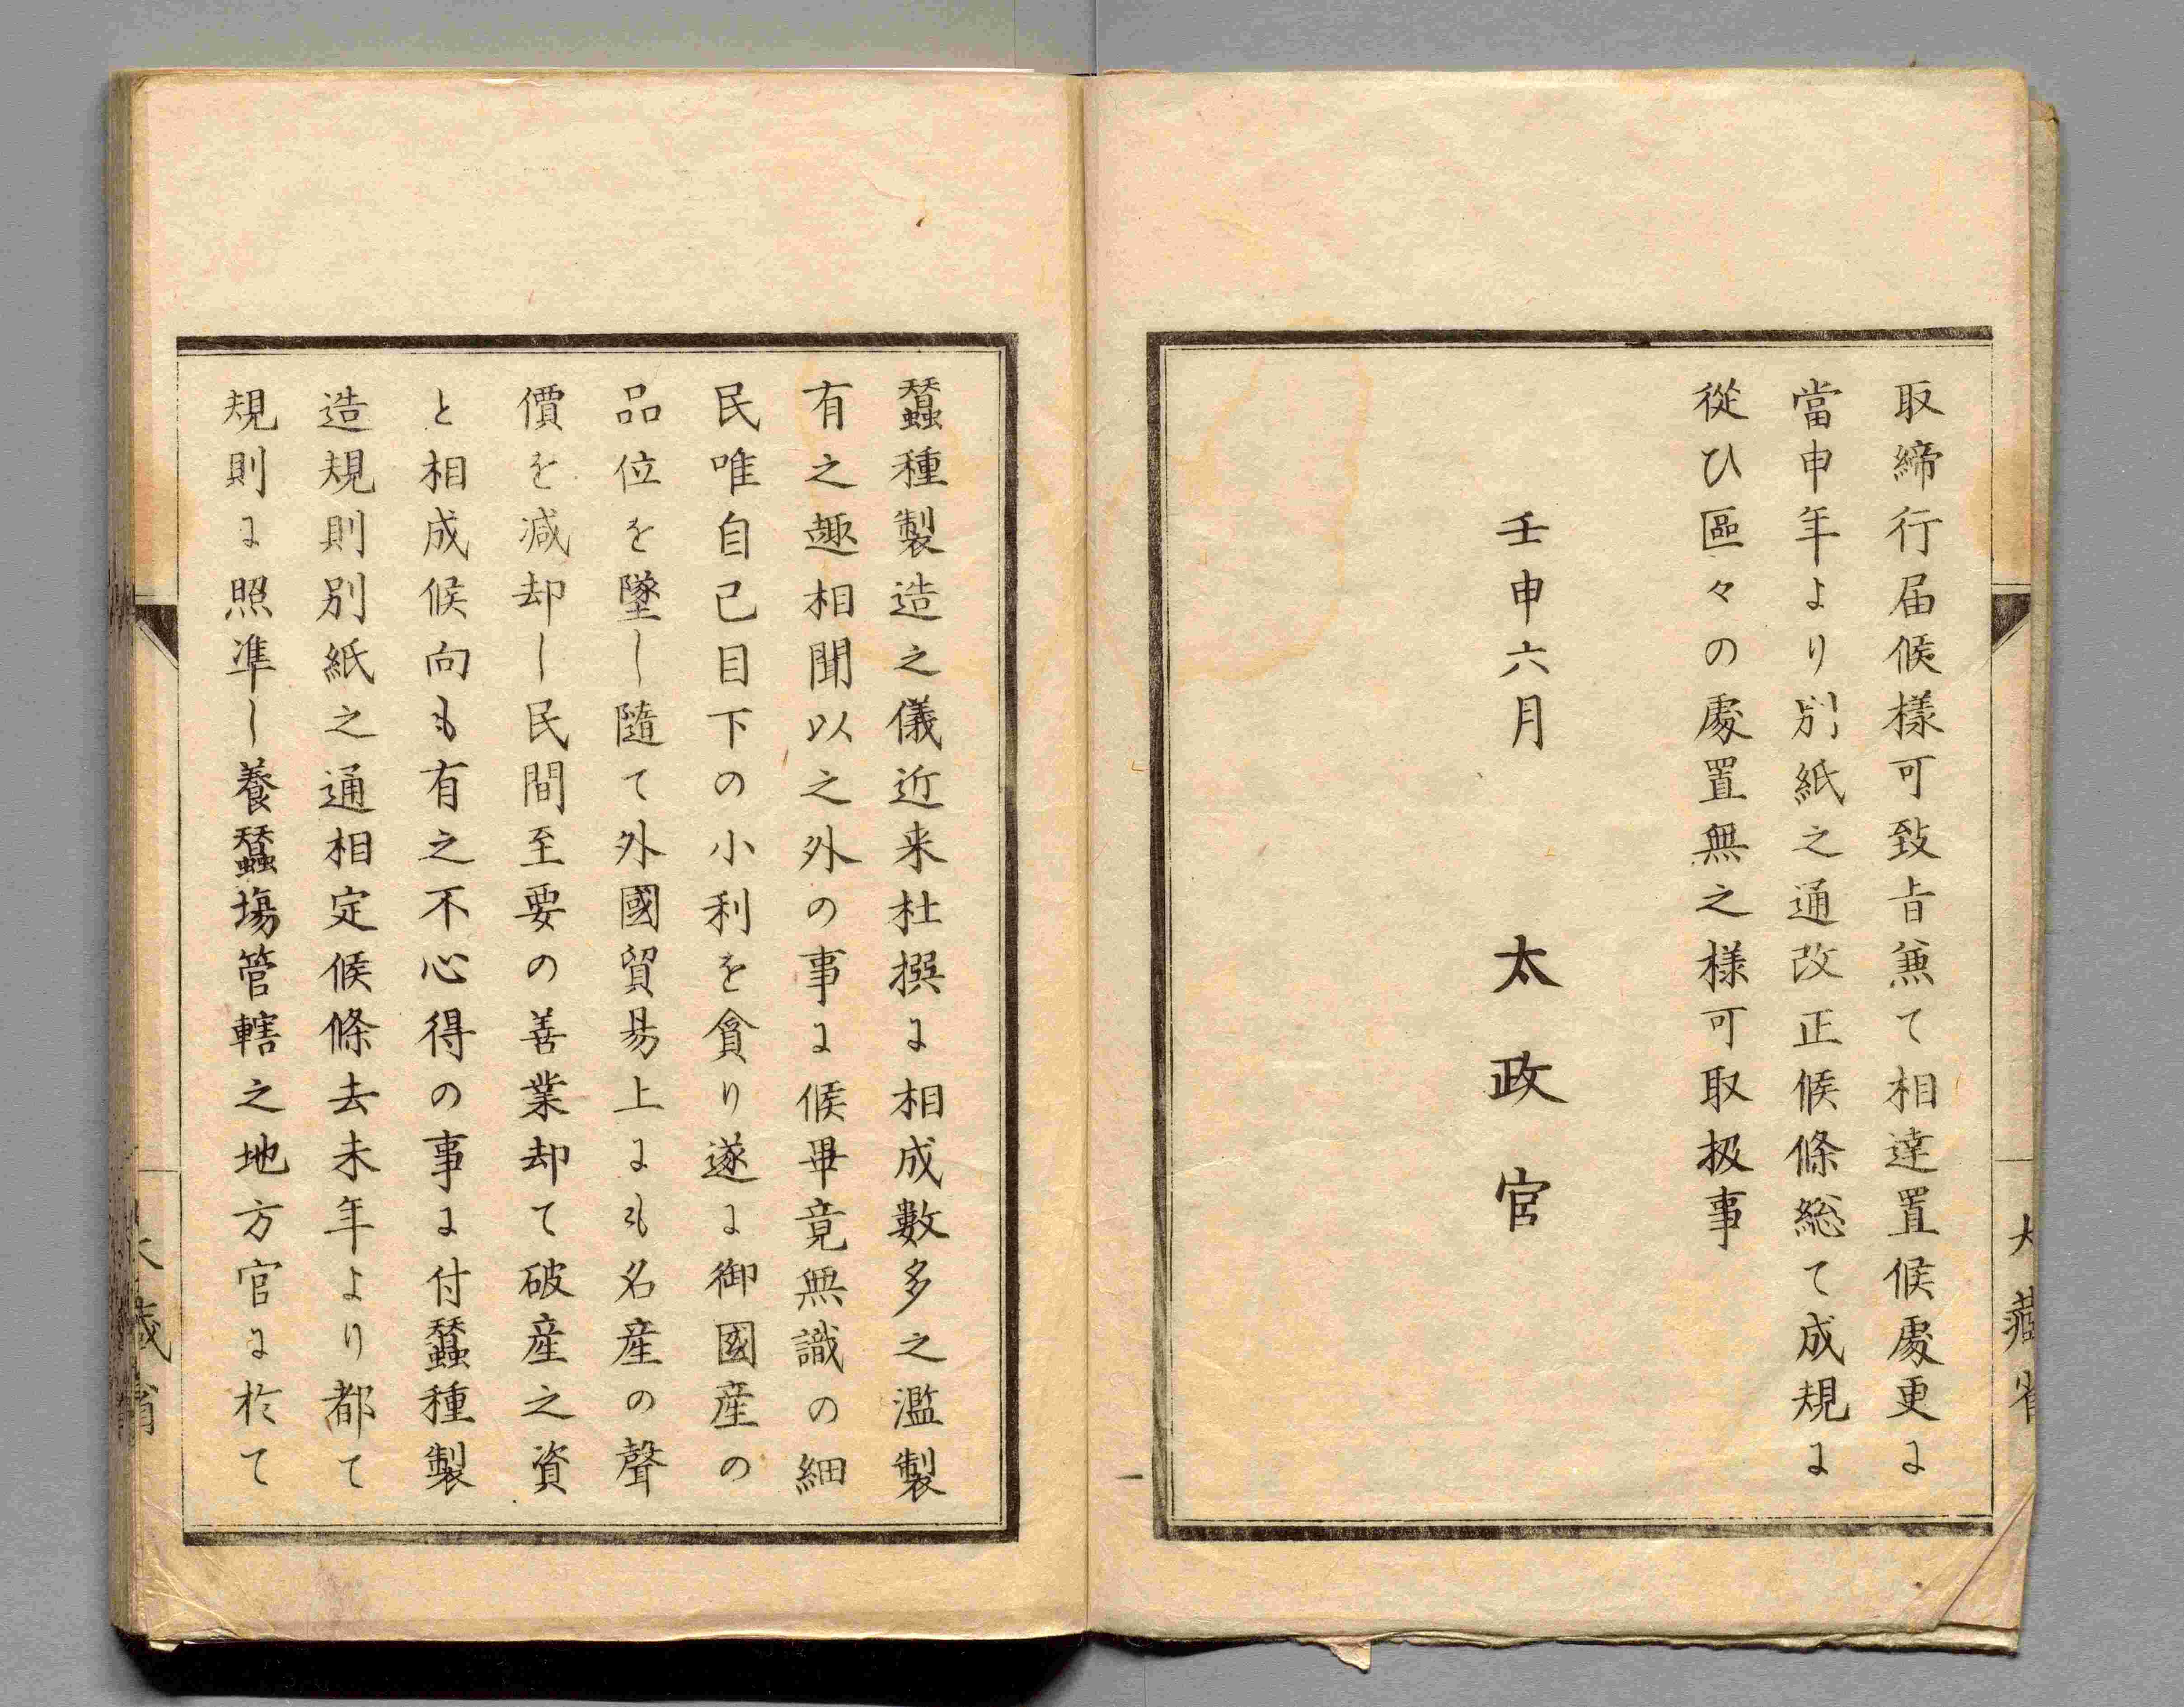 取締行届候樣可致旨兼て相達置候處更に
當申年より別紙之通改正候條総て成規に
從ひ區々の處置無之樣可取扱事
壬申六月　太政官
大藏省
蠶種製造之儀近来杜撰に相成數多之濫製
有之趣相聞以之外の事に候畢竟無識の細
民唯自己目下の小利を貪り遂に御國産の
品位を墜し隨て外國貿易上にも名産の聲
價を減却し民間至要の善業却て破産之資
と相成候向も有之不心得の事に付蠶種製
造規則別紙之通相定候條去未年より都て
規則に照準し養蠶塲管轄之地方官に於て
大藏省